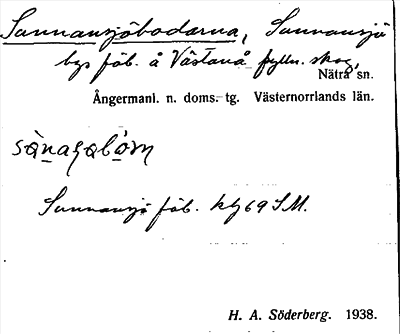 Sunnansjöbodarna, Sunnansjö
bys fäb. å Västanå fylln. skog,
Nätra sn.
Ångermanl. n. doms.-tg. Västernorrlands län.
Sunnansjö fäb. kbg 69 S.M.
H. A. Söderberg. 1938.